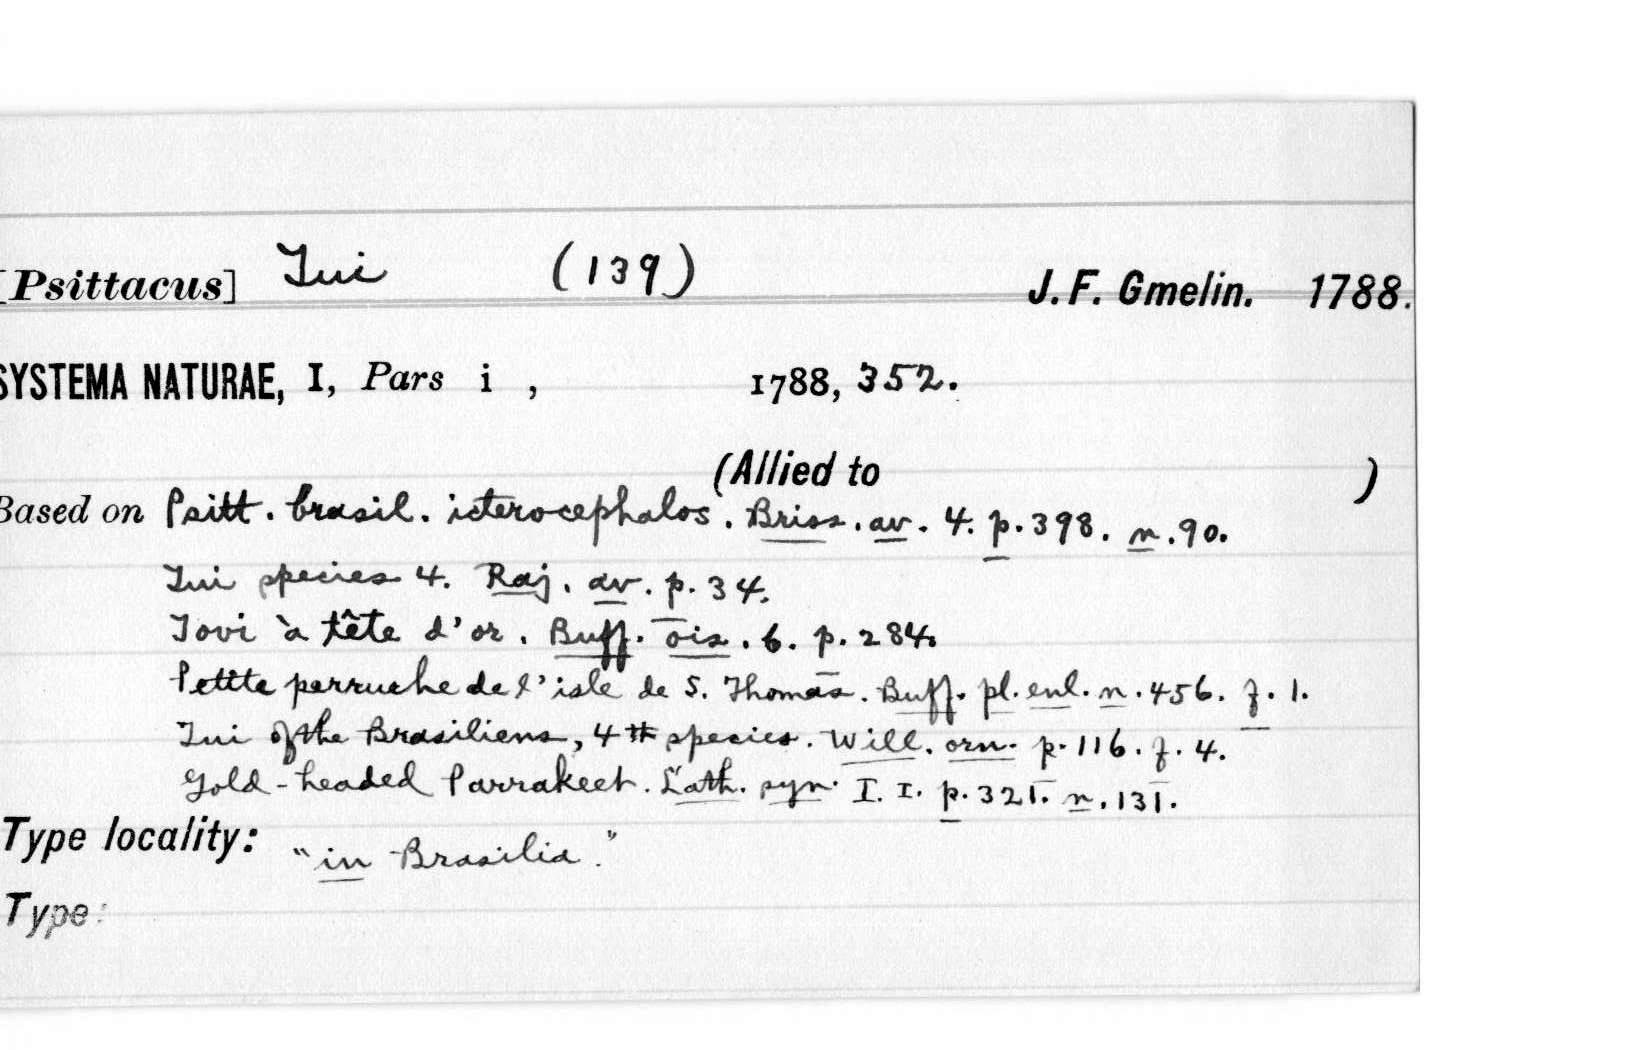 [Psittacus] Tui (139) J. F. Gmelin. 1788.
SYSTEMA NATURAE, I, Pars i , 1788, 352.
(Allied to )
Based on Psitt. brasil. icterocephalos. Briss. av. 4. p. 398. n. 90.
Tui species 4. Raj. av. p. 34.
Tovi à tête d'or. Buff. ois. 6. p. 284.
Petite perruche de l'isle de S. Thomas. Buff. pl. enl. n. 456. f. 1.
Tui of the Brasiliens, 4th species. Will. orn. p. 116. f. 4.
Gold-headed Parrakeet. Lath. syn. I. I. p. 321. n. 131.
Type locality: "in Brasilia."
Type: